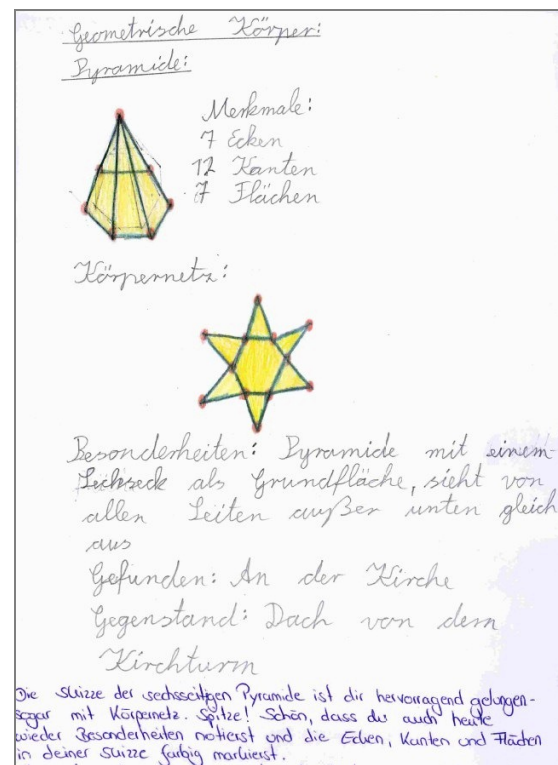 Geometrische Körper:
Pyramide:
Merkmale:
7 Ecken
12 Kanten
7 Flächen
Körpernetz:
Besonderheiten: Pyramide mit einem
Sechseck als Grundfläche, sieht von
allen Seiten außer unten gleich
aus
Gefunden: An der Kirche
Gegenstand: Dach von dem
Kirchturm
Die Skizze der sechsseitigen Pyramide ist dir hervorragend gelungen-
sogar mit Körpernetz. Spitze! Schön, dass du auch heute
wieder Besonderheiten notierst und die Ecken, Kanten und Flächen
in deiner Skizze farbig markierst.